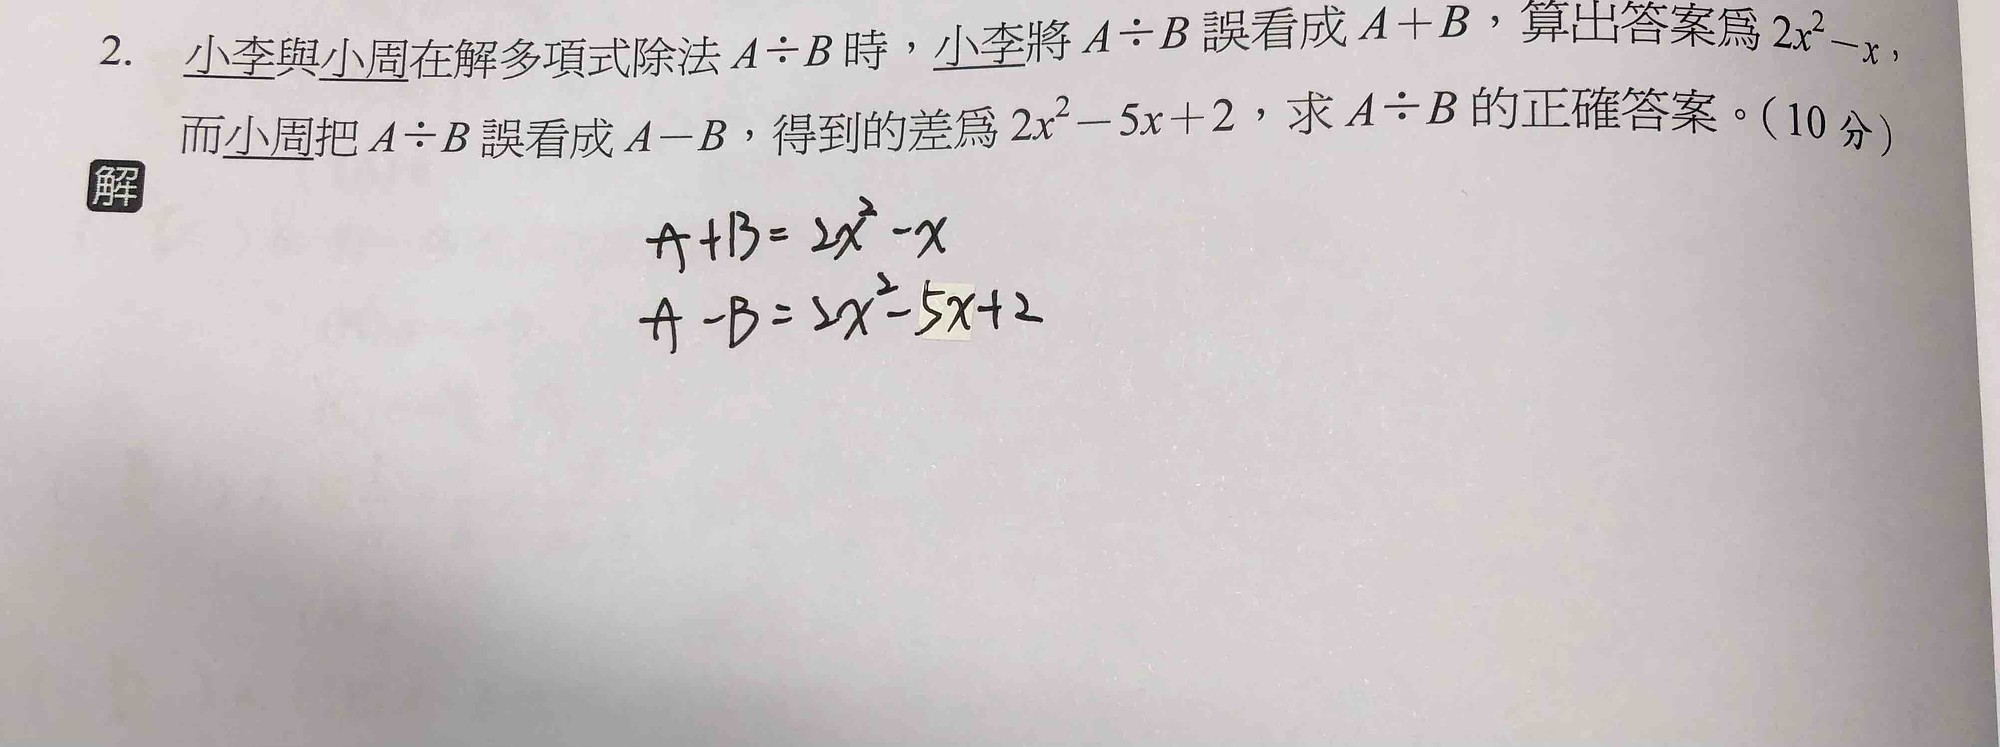 2. 小李與小周在解多項式除法 A÷B 時，小李將 A÷B 誤看成 A＋B，算出答案爲 2x²－x，
而小周把 A÷B 誤看成 A－B，得到的差爲 2x²－5x＋2，求 A÷B 的正確答案。(10 分)
解
A+B=2x²-x
A-B=2x²-5x+2